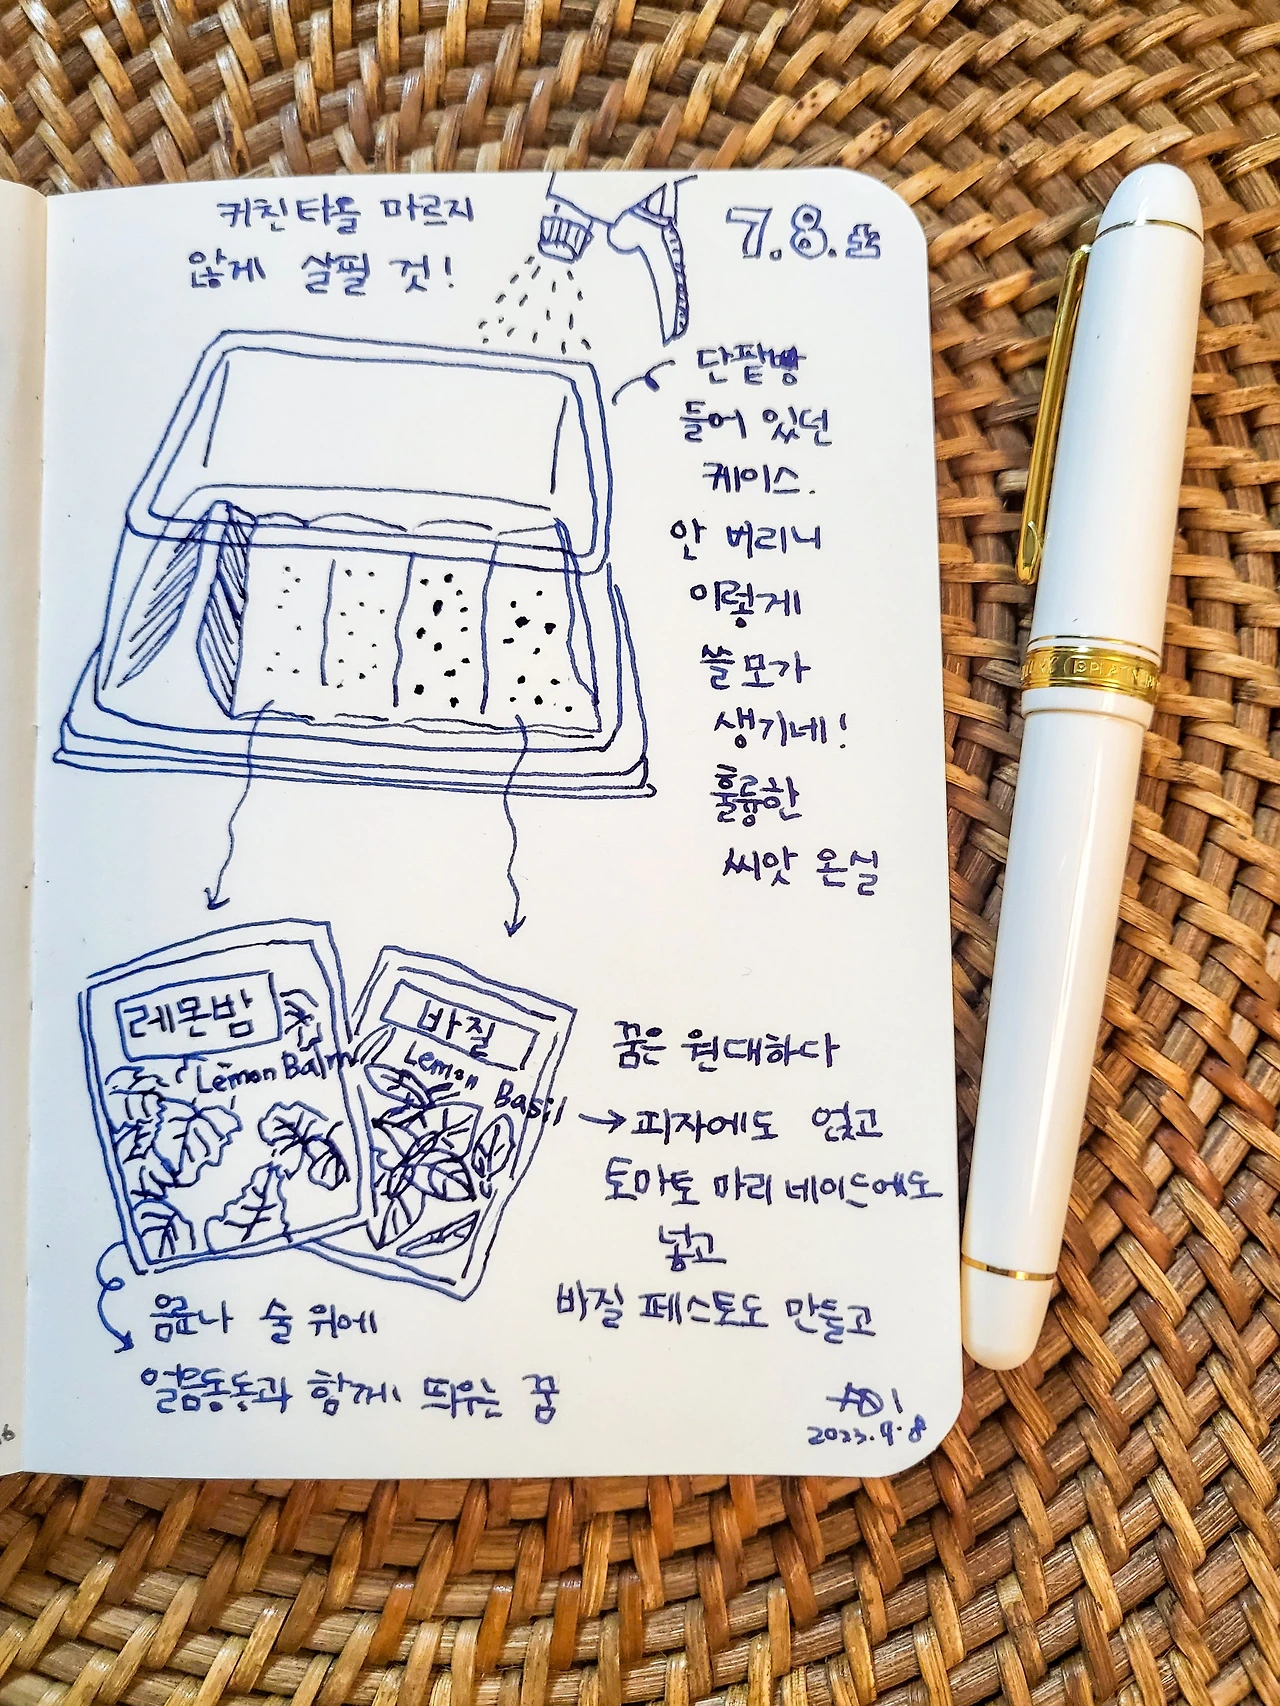 키친타올 마르지
않게 살필 것!
7.8.土
단팥빵
들어 있던
케이스.
안 버리니
이렇게
쓸모가
생기네!
훌륭한
씨앗 온실
레몬밤
Lemon Balm
바질
Lemon
Basil
꿈은 원대하다
→피자에도 얹고
토마토 마리네이드에도
넣고
바질 페스토도 만들고
음료나 술 위에
얼음동동과 함께 띄우는 꿈